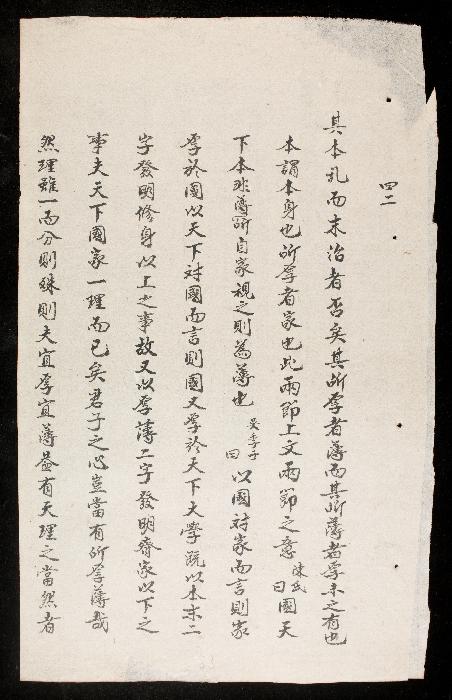 四二
其本乱而末治者否矣其所厚者薄而其所薄者厚未之有也
本謂本身也所厚者家也此兩節上文兩節之意陳氏曰國天
下本非薄所自家視之則為薄也吳季子曰以國对家而言則家
厚於國以天下对國而言則國又厚於天下大學既以本末二
字發明修身以上之事故又以厚薄二字發明齊家以下之
事夫天下國家一理而已矣君子之心豈當有所厚薄哉
然理雖一而分則殊則夫宜厚宜薄盖有天理之當然者